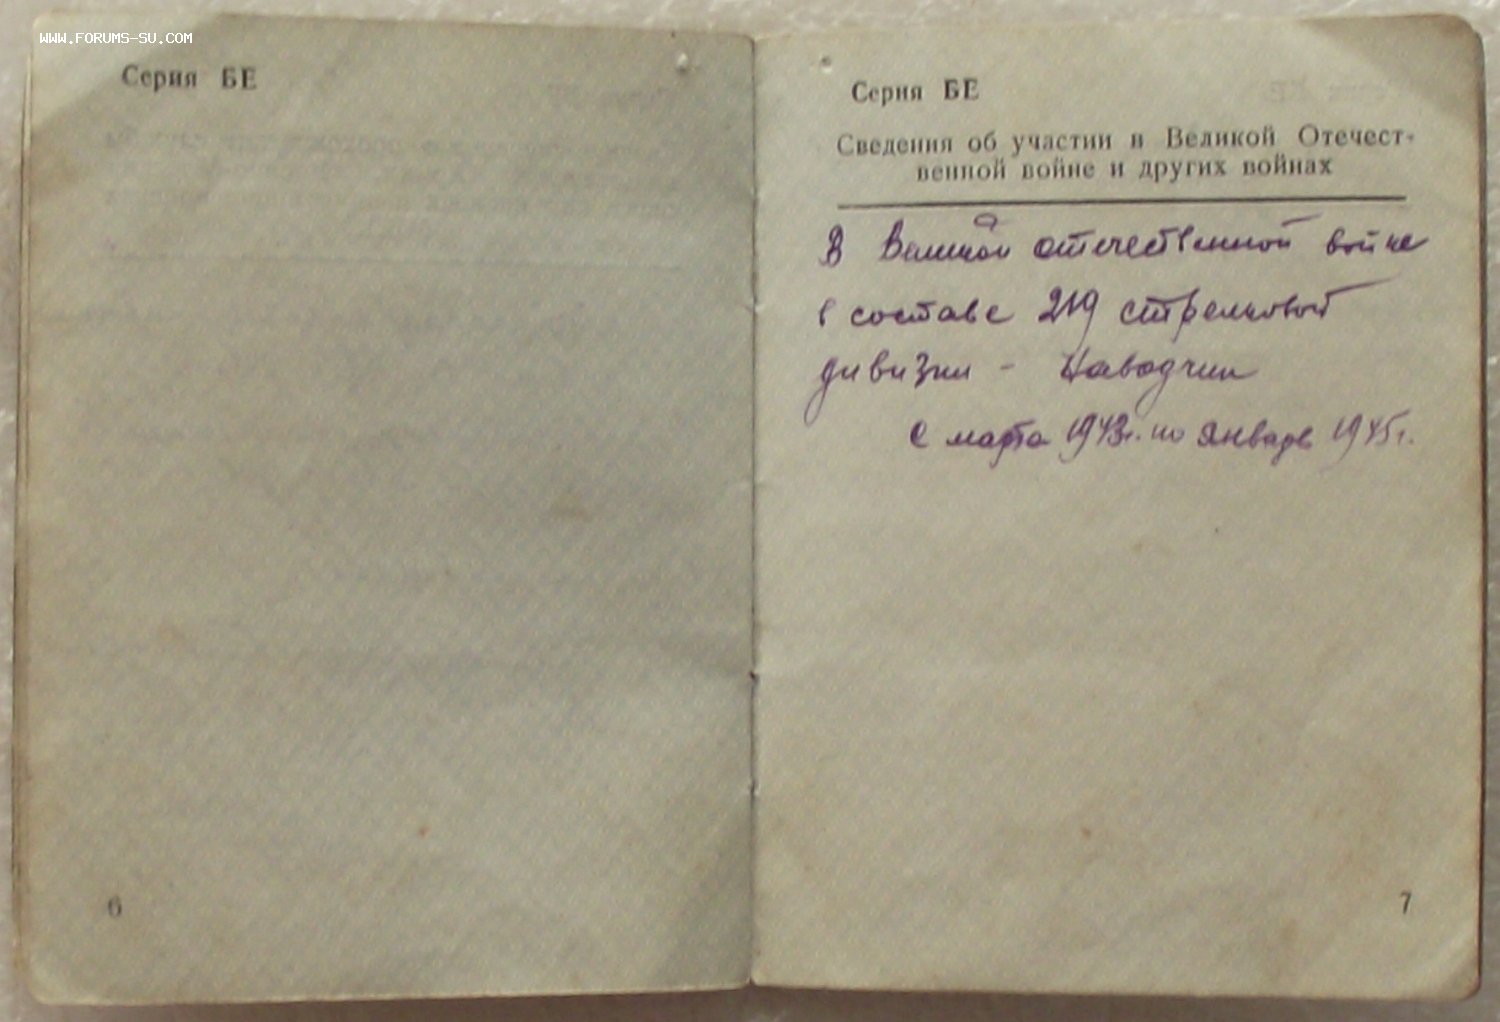 WWW.FORUMS-SU.COM
Серия БЕ
6
Серия БЕ
Сведения об участии в Великой Отечест-
венной войне и других войнах
В Великой отечественной войне
в составе 219 стрелковой
дивизии - Наводчик
с марта 1943г. по январь 1945г.
7